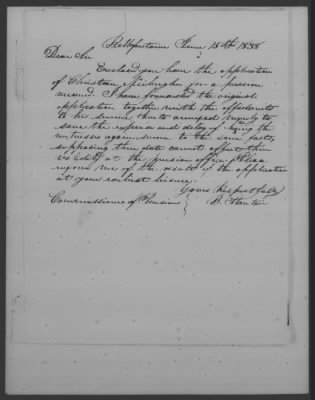 Bellefontaine June 15th 1838
Dear Sir
Enclosed you have the application
of Christian for a pension
I have forwarded the original
application together with the affidavits
to his
save the expense and delay of the
witnesses again sworn to the same facts
supposing their date cannot affect their
validity at the pension office. Please
inform me of the result of the application
at your earliest leisure.
Yours Respectfully
Commissioner of Pensions } B. Stanton